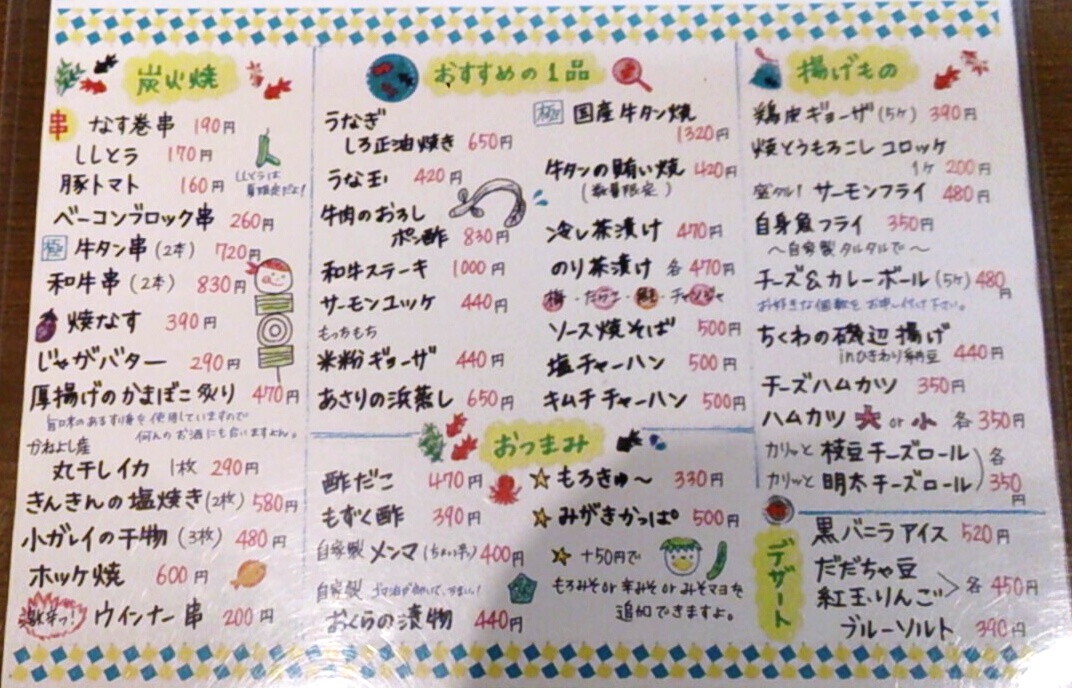 炭火焼
串 なす巻串 190円
ししとう 170円
ししとうは
夏限定だよ!
豚トマト 160円
ベーコンブロック串 260円
極 牛タン串(2本) 720円
和牛串(2本) 830円
焼なす 390円
じゃがバター 290円
厚揚げのかまぼこ炙り 470円
旨味のあるすり身を使用していますので
何んのお酒にも合いますよん。
かねよし産
丸干しイカ 1枚 290円
きんきんの塩焼き(2枚) 580円
小ガレイの干物(3枚) 480円
ホッケ焼 600円
激辛っ! ウインナー串 200円
おすすめの1品
うなぎ
しろ正油焼き 650円
うな玉 420円
牛肉のおろし
ポン酢 830円
和牛ステーキ 1000円
サーモンユッケ 440円
もっちもち
米粉ギョーザ 440円
あさりの浜蒸し 650円
極 国産牛タン焼
1320円
牛タンの賄い焼 420円
(数量限定)
冷し茶漬け 470円
のり茶漬け 各470円
梅・たらこ・鮭・チャンジャ
ソース焼そば 500円
塩チャーハン 500円
キムチチャーハン 500円
おつまみ
酢だこ 470円
もずく酢 390円
自家製 メンマ(ちょい辛) 400円
自家製
おくらの漬物 440円
☆もろきゅ〜 330円
☆みがきかっぱ 500円
☆ +50円で
もろみそor辛みそorみそマヨを
追加できますよ。
揚げもの
鶏皮ギョーザ(5ヶ) 390円
焼とうもろこしコロッケ
1ヶ 200円
サーモンフライ 480円
白身魚フライ 350円
〜自家製タルタルで〜
チーズ&カレーボール(5ヶ) 480円
お好きな個数をお申し付け下さい。
ちくわの磯辺揚げ
inひきわり納豆 440円
チーズハムカツ 350円
ハムカツ 大 or 小 各350円
カリッと 枝豆チーズロール
カリッと 明太チーズロール
各350円
デザート
黒バニラアイス 520円
だだちゃ豆
紅玉・りんご 各450円
ブルーソルト 390円